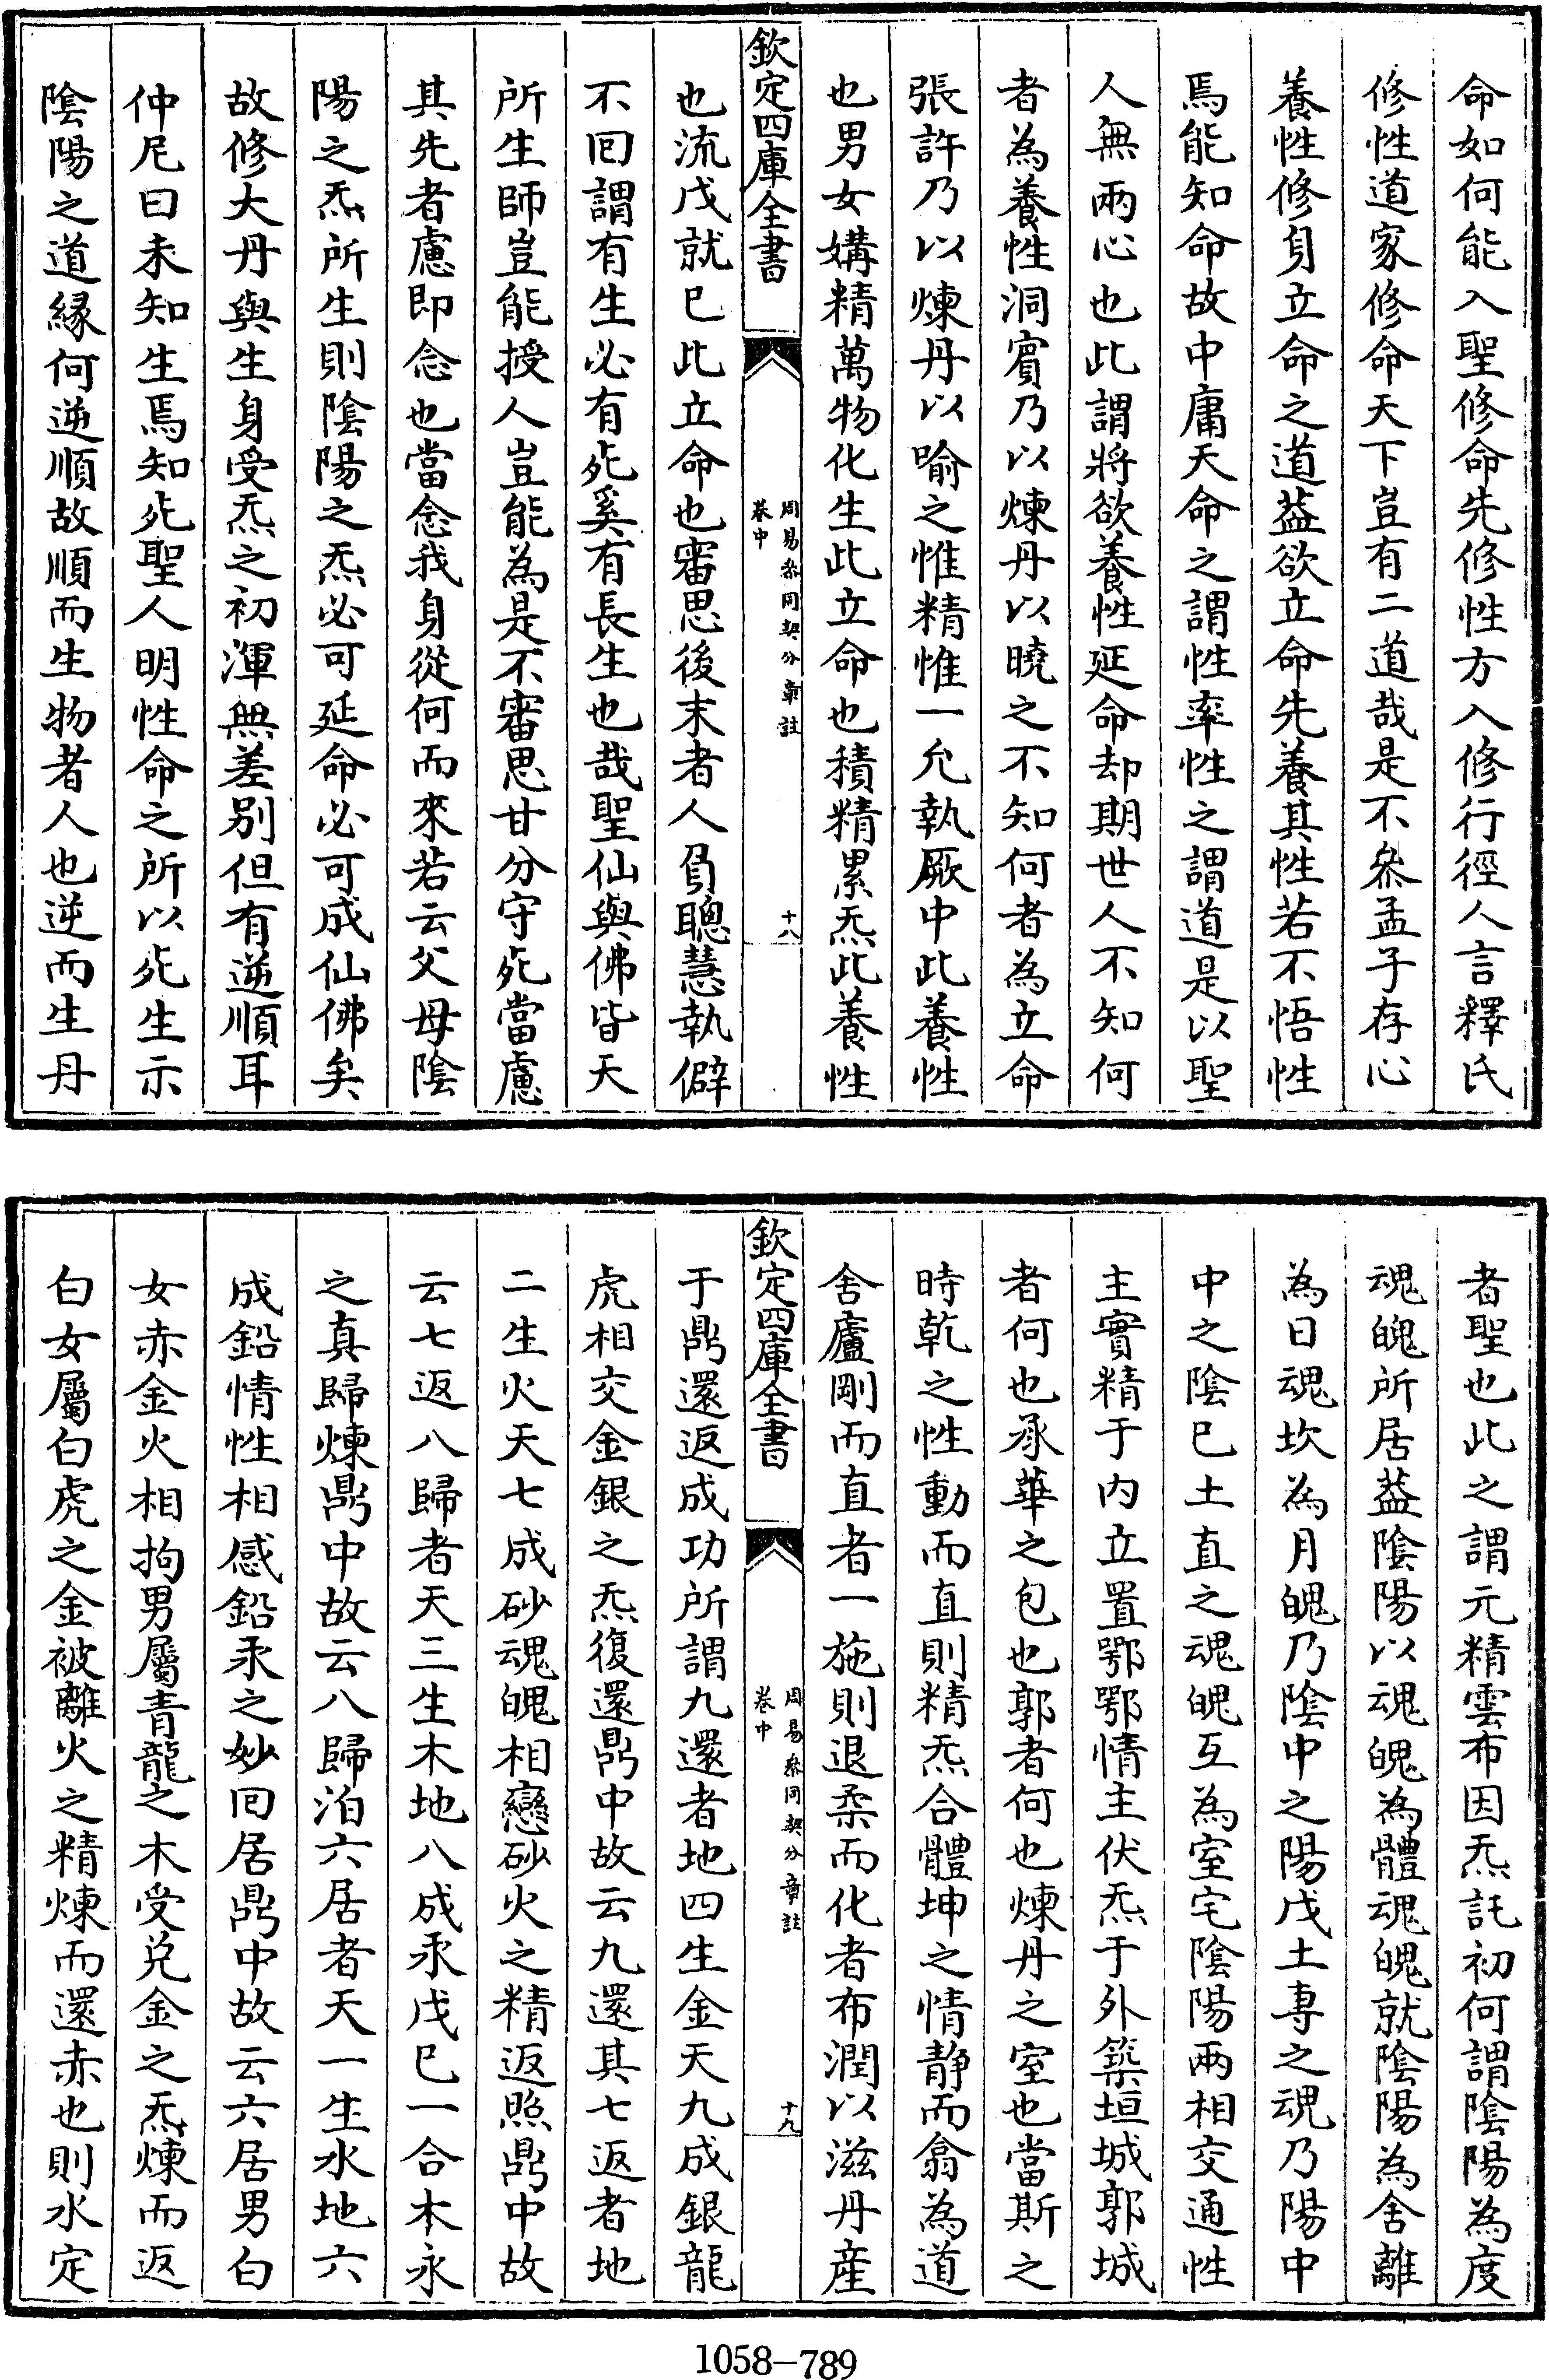 命如何能入聖修命先修性方入修行徑人言釋氏
修性道家修命天下豈有二道哉是不叅孟子存心
養性修身立命之道葢欲立命先養其性若不悟性
焉能知命故中庸天命之謂性率性之謂道是以聖
人無兩心也此謂將欲養性延命却期世人不知何
者為養性洞賔乃以煉丹以曉之不知何者為立命
張許乃以煉丹以喻之惟精惟一允執厥中此養性
也男女媾精萬物化生此立命也積精累炁此養性
欽定四庫全書
周易參同契分章註
卷中
十八
也流戊就已此立命也審思後末者人負聰慧執僻
不回謂有生必有死奚有長生也哉聖仙與佛皆天
所生師豈能授人豈能為是不審思甘分守死當慮
其先者慮即念也當念我身從何而來若云父母隂
陽之炁所生則隂陽之炁必可延命必可成仙佛矣
故修大丹與生身受炁之初渾無差别但有逆順耳
仲尼曰未知生焉知死聖人明性命之所以死生示
隂陽之道緣何逆順故順而生物者人也逆而生丹
者聖也此之謂元精雲布因炁託初何謂隂陽為度
魂魄所居葢隂陽以魂魄為體魂魄就隂陽為舍離
為日魂坎為月魄乃隂中之陽戊土専之魂乃陽中
中之隂巳土直之魂魄互為室宅隂陽兩相交通性
主實精于内立置鄂鄂情主伏炁于外築垣城郭城
者何也承華之包也郭者何也煉丹之室也當斯之
時乾之性動而直則精炁合體坤之情静而翕為道
舍廬剛而直者一施則退柔而化者布潤以滋丹産
欽定四庫全書
周易參同契分章註
卷中
十九
于鼎還返成功所謂九還者地四生金天九成銀龍
虎相交金銀之炁復還鼎中故云九還其七返者地
二生火天七成砂魂魄相戀砂火之精返照鼎中故
云七返八歸者天三生木地八成汞戊巳一合木永
之真歸煉鼎中故云八歸泊六居者天一生水地六
成鉛情性相感鉛汞之妙回居鼎中故云六居男白
女赤金火相拘男屬青龍之木受兌金之炁煉而返
白女屬白虎之金被離火之精煉而還赤也則水定
1058-789